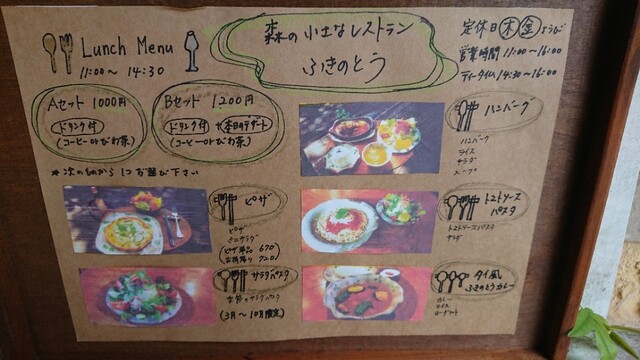 Lunch Menu
11:00〜14:30
森の小さなレストラン
ふきのとう
定休日 木 金 ようび
営業時間 11:00〜16:00
ティータイム 14:30〜16:00
Aセット 1000円
ドリンク付
(コーヒー or びわ茶)
Bセット 1200円
ドリンク付 + 本日のデザート
(コーヒー or びわ茶)
*次の中から1つお選び下さい
ハンバーグ
ハンバーグ
ライス
サラダ
スープ
ピザ
ピザ
ミニサラダ
(ピザ単品 670
お持帰り 720)
トマトソース
パスタ
トマトソースパスタ
サラダ
サラダパスタ
(3月〜10月限定)
タイ風
ふきのとうカレー
カレー
ライス
ヨーグルト